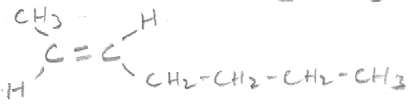 CH3 H
C = C
H CH2-CH2-CH2-CH3